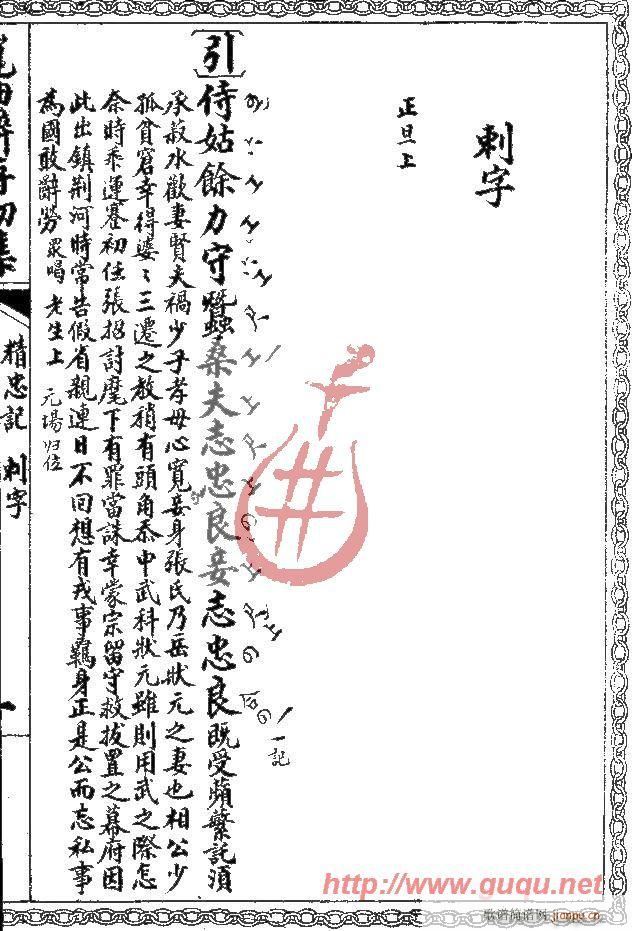 刺字
正旦上
[引]侍姑餘力守蠶桑夫志忠良妾志忠良既受蘋蘩託須
承菽水歡妻賢夫禍少子孝母心寬妾身張氏乃岳狀元之妻也相公少
孤貧窘幸得婆〻三遷之教稍有頭角忝中武科狀元雖則用武之際怎
奈時乖運蹇初任張招討麾下有罪當誅幸蒙宗留守救拔置之幕府因
此出鎮荆河時常告假省親連日不回想有戎事羈身正是公而忘私事
為國敢辭勞 眾喝 老生上 元場归位
一記
精忠記 刺字
一
http://www.guqu.net
歌谱简谱网 jianpu.cn